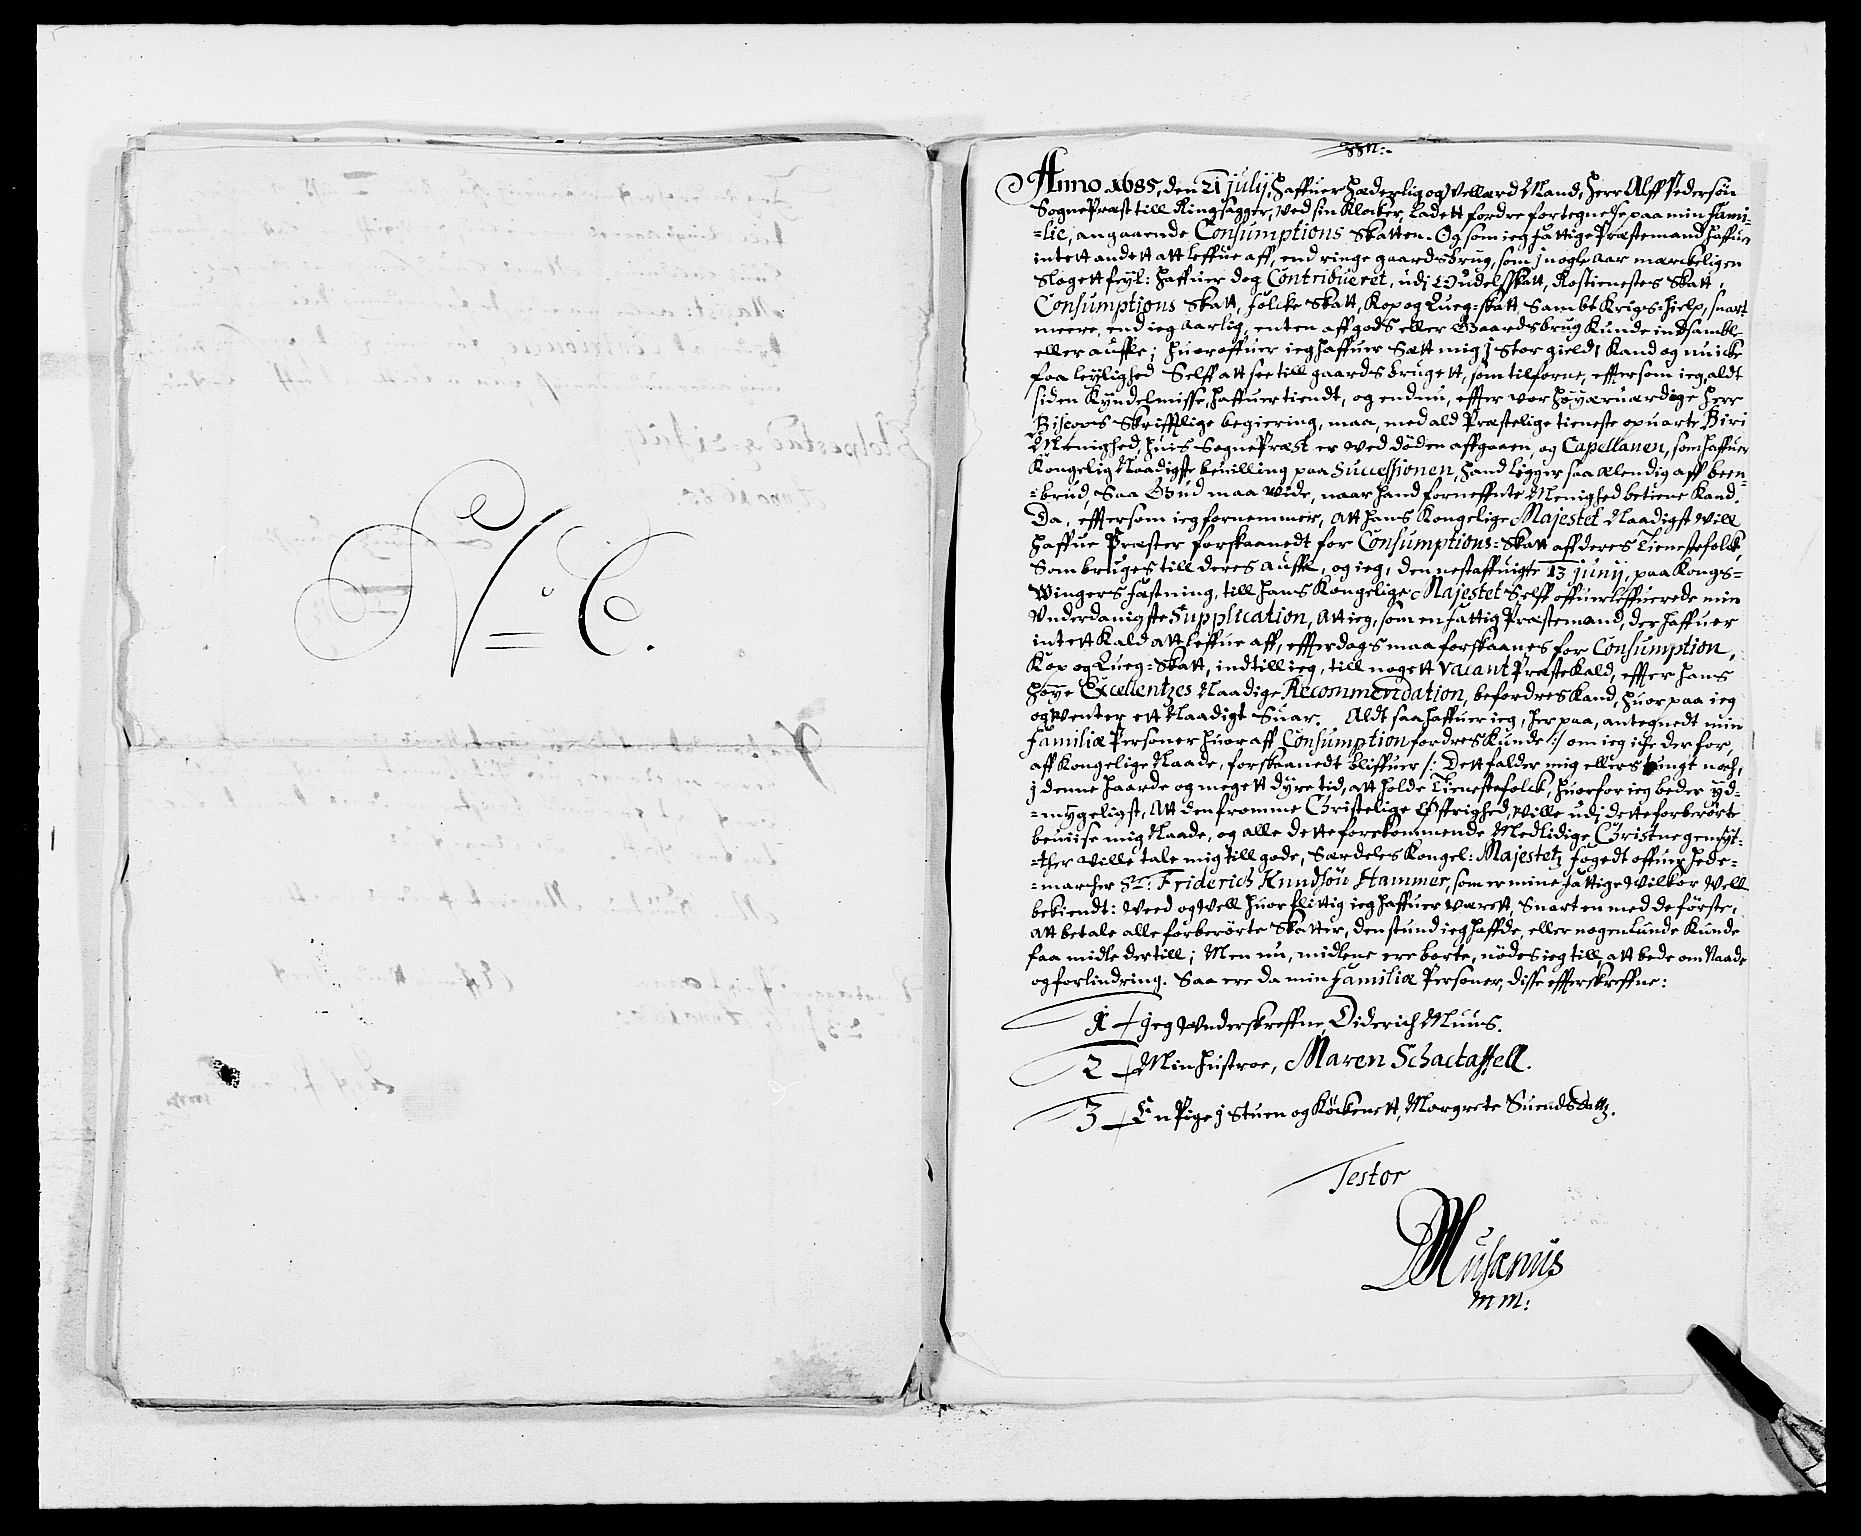 N: C.
Anno 1685, den 21 julij, haffuer hæderlig og Vellærd Mand, Herr Alff Pedersön
SognePræst till Ringsagger, Ved sin Klocker, Ladett fordre fortegnelse paa min Fami-
-lie, angaaende Consumptions Skatten. Og som ieg fattige Præstemand haffuer
intett andett att leffue aff, end ringe gaardsbrug, som j nogle aar mærkeligen
Slogett feyl: haffuer dog Contribueret, udj Oudelsskatt, Rostienestes Skatt,
Consumptions Skatt, folcke Skatt, Kop og Queg-skatt, Sambt Krigs-hielp, snart
meere, end ieg aarlig, enten aff gods eller Gaardsbrug Kunde indsamble
eller auffle; huoroffuer ieg haffuer Satt mig j Stor gield, Kand og nu icke
faa leylighed Selff att see till gaardsbrugett, som tilforne, effter som ieg, aldt
siden Kyndelmisse, haffuer tiendt, og endnu, effter vor höyærværdige Herr
Biscops Skrifftlige begiering, maa, med ald Præstelige tieneste opuarte Biri
Menighed, huis SognePræst er ved döden affgaaen, og Capellanen, som haffuer
Kongelig Naadigste beuilling paa Successionen, hand ligger saa ælendig aff been-
-brud, Saa Gud maa vide, naar hand forneffnte Menighed betiene Kand.
Da, efftersom ieg fornemmer, att hans Kongelige Majestet Naadigst Vill
haffue Præster forskaanedt for Consumptions-Skatt aff deres Tienestefolck,
Som bruges till deres auffle, og ieg, den nestaffuigte 13 junij, paa Kongs-
Wingers fæstning, till hans Kongelige Majestet Selff offuerleffuerede min
Underdanigste Supplication, att ieg, som en fattig Præstemand, der haffuer
intett Kald att leffue aff, effterdags maa forskaanes for Consumption,
Kop og Queg-Skatt, indtill ieg, till nogett vacant Præstekald, effter hans
höye Excellentzes Naadige Recommendation, befordres Kand, huor paa ieg
og venter ett Naadigt Suar. Aldt saa haffuer ieg, her paa, antegnedt min
familiæ Personer huor aff Consumption fordres Kunde :/ om ieg icke der for,
aff Kongelige Naade, forskaanedt bliffuer /: Dett falder mig ellers tungt noch,
j denne haarde og megett dyre tid, att holde Tienestefolck, huorfor ieg beder yd-
-mygeligst, Att den fromme Christelige Öffrighed, ville udj dette forberörte
beuiise mig Naade, og alle dette forekommende Medlidige Christne gemyt-
-ther ville tale mig till gode, Særdeles Kongel: Majestetz fogedt offuer Hede-
-marchen Sr: Friderich Knudsön Hammer, som er mine fattige Vilkor Vell
bekiendt: Weed og Well huor flittig ieg haffuer værett, Snart en med de förste,
att betale alle forberörte Skatter, den stund ieg haffde, eller nogenlunde Kunde
faa midle der till; Men nu, midlene ere borte, nödes ieg till, att bede om Naade
og forlindring. Saa ere da min Familiæ Personer, disse effterskreffne:
1 Jeg Underskreffne, Diderich Muus.
2 Min hustroe, Maren Schactaffell.
3 En Pige j Stuen og Köckenett, Margrete Suends datt.
Testor
DMusænus
mm: